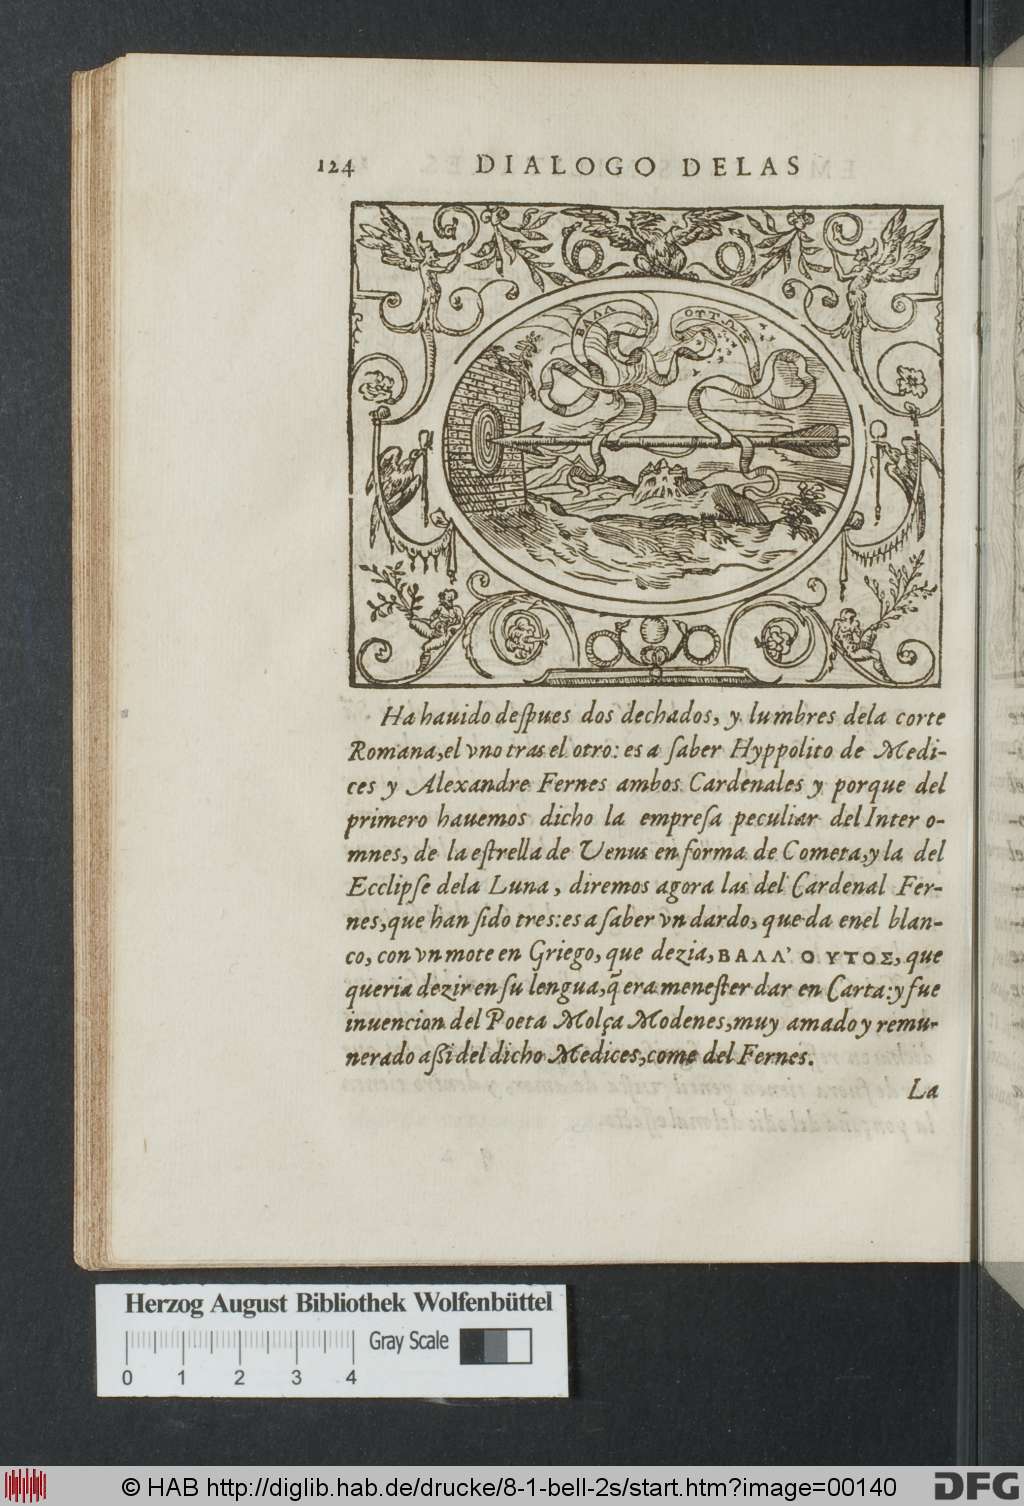 124 DIALOGO DELAS
ΒΑΛΛ ΟΥΤΩΣ
Ha hauido despues dos dechados, y lumbres dela corte
Romana, el vno tras el otro: es a saber Hyppolito de Medi-
ces y Alexandre Fernes ambos Cardenales y porque del
primero hauemos dicho la empresa peculiar del Inter o-
mnes, de la estrella de Venus en forma de Cometa, y la del
Ecclipse dela Luna, diremos agora las del Cardenal Fer-
nes, que han sido tres: es a saber vn dardo, que da enel blan-
co, con vn mote en Griego, que dezia, ΒΑΛΛ' ΟΥΤΟΣ, que
queria dezir en su lengua, q̃ era menester dar en Carta: y fue
inuencion del Poeta Molça Modenes, muy amado y remu-
nerado assi del dicho Medices, come del Fernes.
La
Herzog August Bibliothek Wolfenbüttel
Gray Scale
0 1 2 3 4
© HAB http://diglib.hab.de/drucke/8-1-bell-2s/start.htm?image=00140
DFG